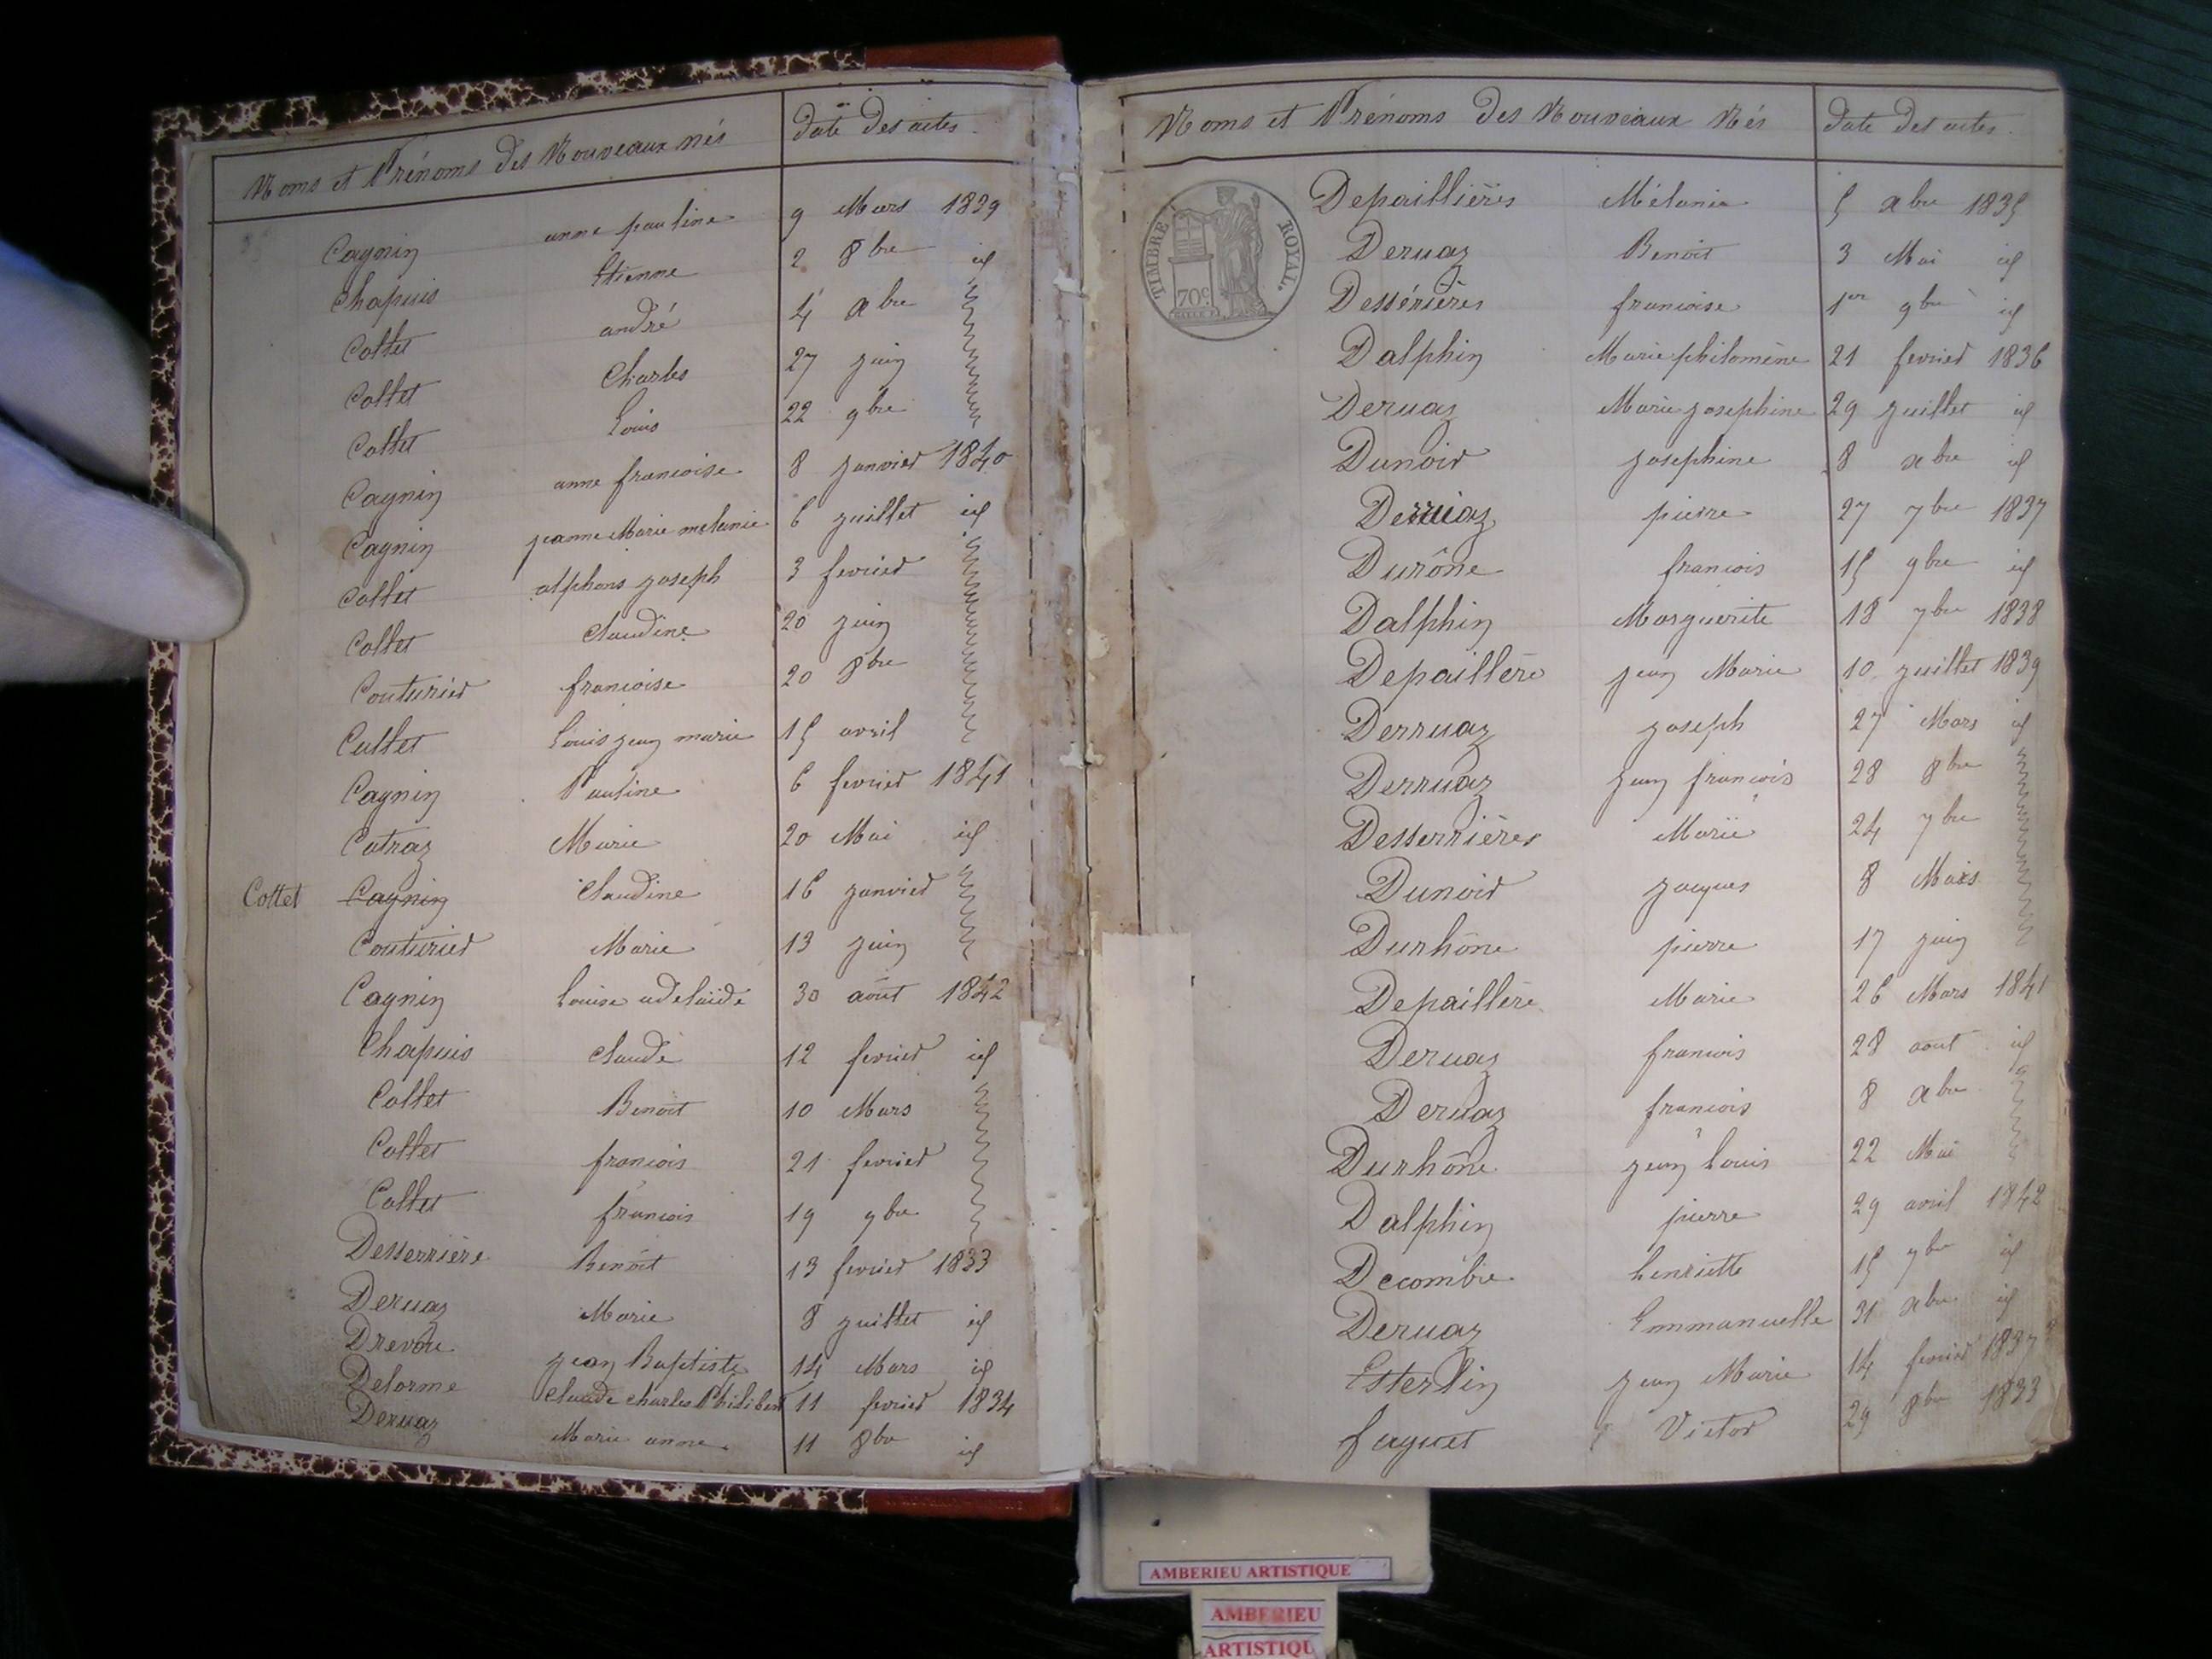 Noms et Prénoms des Nouveaux nés date des actes.
Cagnin anne pauline 9 Mars 1839
Chapuis Etienne 2 8bre id
Collet andré 4 xbre
Collet Charles 27 juin
Collet Louis 22 9bre
Cagnin anne francoise 8 janvier 1840
Cagnin jeanne Marie melanie 6 juillet id
Collet alphons joseph 3 fevrier
Collet Claudine 20 juin
Couturier francoise 20 8bre
Cullet Louis jean marie 15 avril
Cagnin Pauline 6 fevrier 1841
Catraz Marie 20 Mai id
Collet Cagnin Claudine 16 janvier
Couturier Marie 13 juin
Cagnin Louise adelaïde 30 août 1842
Chapuis Claude 12 fevrier id
Collet Benoit 10 Mars
Collet francois 21 fevrier
Collet francois 19 9bre
Desserrière Benoit 13 fevrier 1833
Deruaz Marie 8 juillet id
Drevou jean Baptiste 14 Mars id
Delorme Claude Charles Philibert 11 fevrier 1834
Deruaz Marie anne 11 8bre id
Noms et Prénoms des Nouveaux Nés date des actes.
TIMBRE ROYAL.
70c.
Depaillières Mélanie 5 xbre 1835
Deruaz Benoit 3 Mai id
Dessérières francoise 1er 9bre id
Dalphin Marie philomène 21 fevrier 1836
Deruaz Marie josephine 29 juillet id
Dunoir josephine 8 xbre id
Derruaz pierre 27 7bre 1837
Durône francois 15 9bre id
Dalphin Marguerite 18 7bre 1838
Depaillère jean Marie 10 juillet 1839
Derruaz joseph 27 Mars id
Derruaz jean francois 28 8bre
Desserrières Marie 24 7bre
Dunoir jacques 8 Mars
Durhône pierre 17 juin
Depaillère Marie 26 Mars 1841
Deruaz francois 28 aout id
Deruaz francois 8 xbre
Durhône jean Louis 22 Mai
Dalphin pierre 29 avril 1842
Decombe henriette 15 9bre id
Deruaz Emmanuelle 31 xbre id
Esterlin jean Marie 14 fevrier 1837
faguet Victor 29 8bre 1833
AMBERIEU ARTISTIQUE
AMBERIEU
ARTISTIQU